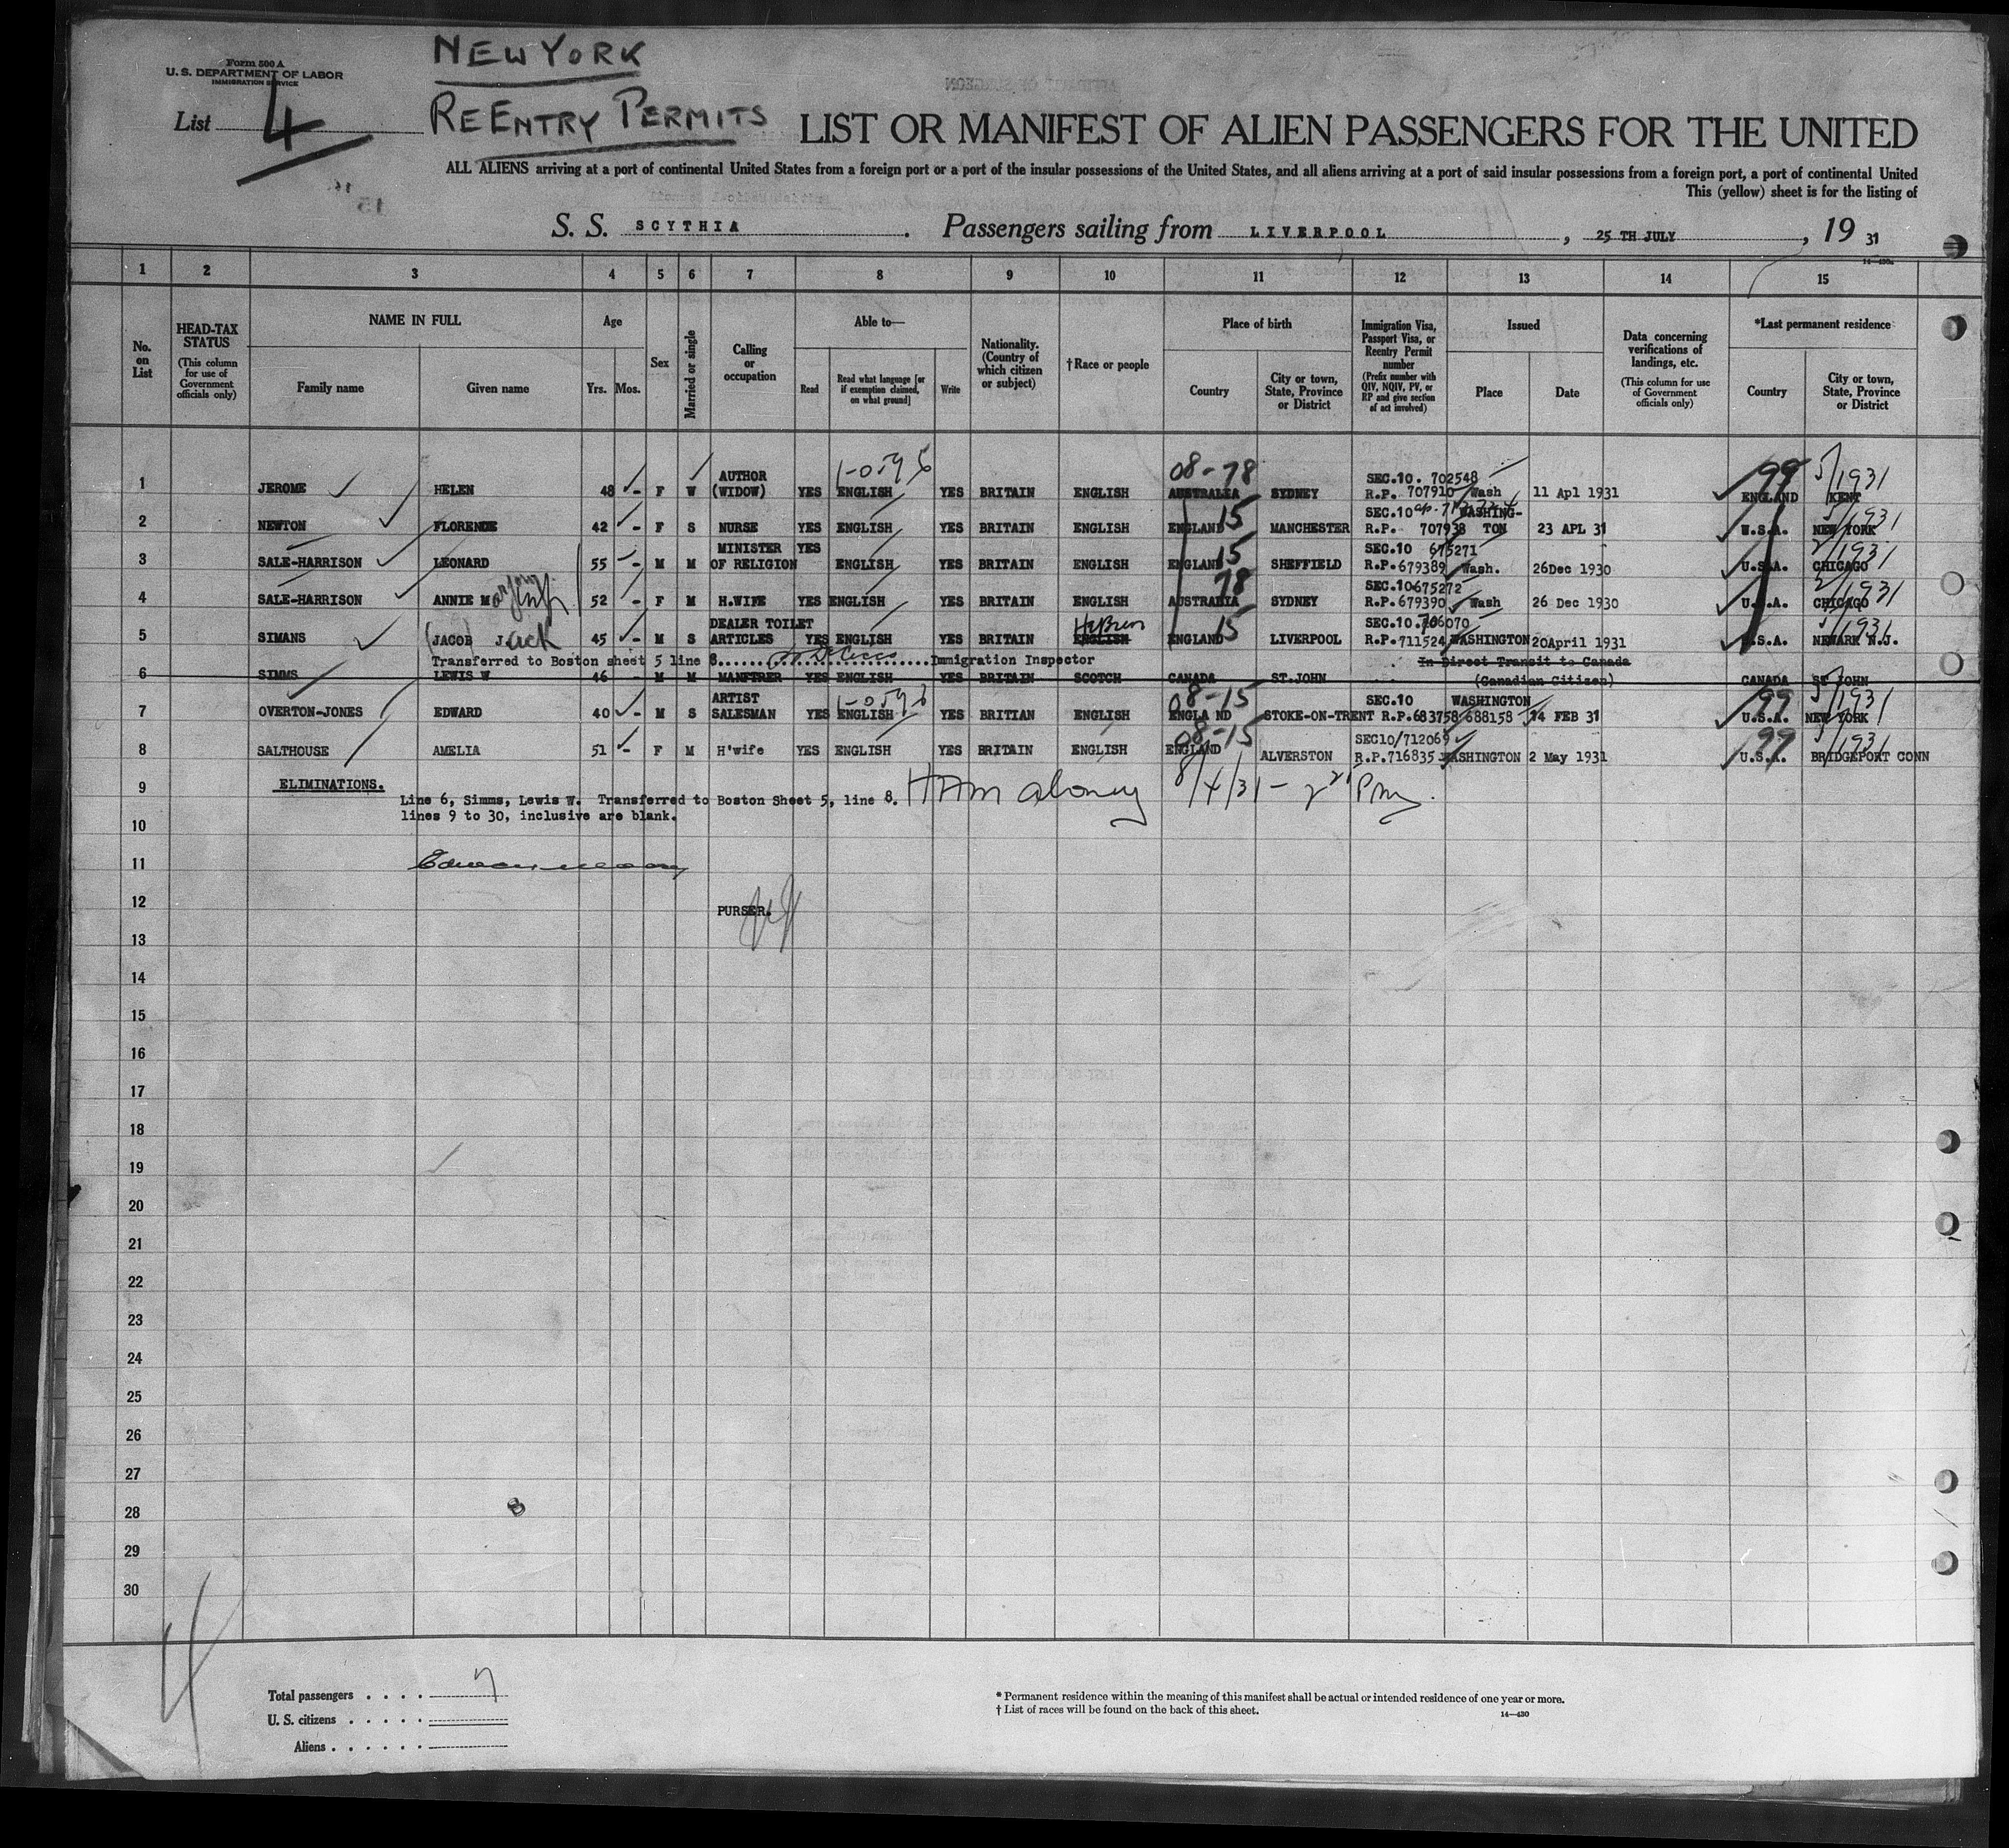 NEW YORK
Form 500 A
U. S. DEPARTMENT OF LABOR
IMMIGRATION SERVICE
List 4
REENTRY PERMITS
LIST OR MANIFEST OF ALIEN PASSENGERS FOR THE UNITED
ALL ALIENS arriving at a port of continental United States from a foreign port or a port of the insular possessions of the United States, and all aliens arriving at a port of said insular possessions from a foreign port, a port of continental United
This (yellow) sheet is for the listing of
S. S. SCYTHIA. Passengers sailing from LIVERPOOL, 25 TH JULY, 19 31
1 2 3 4 5 6 7 8 9 10 11 12 13 14 15
No. on List
HEAD-TAX STATUS
(This column for use of Government officials only)
NAME IN FULL
Family name Given name
Age
Yrs. Mos.
Sex
Married or single
Calling or occupation
Able to—
Read
Read what language [or if exemption claimed, on what ground]
Write
Nationality. (Country of which citizen or subject)
†Race or people
Place of birth
Country
City or town, State, Province or District
Immigration Visa, Passport Visa, or Reentry Permit number
(Prefix number with QIV, NQIV, PV, or RP and give section of act involved)
Issued
Place Date
Data concerning verifications of landings, etc.
(This column for use of Government officials only)
*Last permanent residence
Country
City or town, State, Province or District
1 JEROME HELEN 48 - F W AUTHOR (WIDOW) YES ENGLISH YES BRITAIN ENGLISH 08-78 AUSTRALIA SYDNEY SEC.10. 702548 R.P. 707910 Wash 11 Apl 1931 99 ENGLAND KENT 5/1931
2 NEWTON FLORENCE 42 - F S NURSE YES ENGLISH YES BRITAIN ENGLISH ENGLAND 15 MANCHESTER SEC.10 R.P. 707938 WASHING-TON 23 APL 31 U.S.A. NEW YORK 5/1931
3 SALE-HARRISON LEONARD 55 - M M MINISTER OF RELIGION YES ENGLISH YES BRITAIN ENGLISH ENGLAND 15 SHEFFIELD SEC.10 675271 R.P.679389 Wash. 26Dec 1930 U.S.A. CHICAGO 2/1931
4 SALE-HARRISON ANNIE M 52 - F M H.WIFE YES ENGLISH YES BRITAIN ENGLISH AUSTRALIA 78 SYDNEY SEC.10675272 R.P.679390 Wash 26 Dec 1930 U.S.A. CHICAGO 2/1931
5 SIMANS (JACOB) Jack 45 - M S DEALER TOILET ARTICLES YES ENGLISH YES BRITAIN ENGLISH Hebrew ENGLAND 15 LIVERPOOL SEC.10.706070 R.P.711524 WASHINGTON 20April 1931 U.S.A. NEWARK N.J. 5/1931
Transferred to Boston sheet 5 line 8..........Immigration Inspector
In Direct Transit to Canada
6 SIMMS LEWIS W 46 - M M MANFTRER YES ENGLISH YES BRITAIN SCOTCH CANADA ST.JOHN (Canadian Citizen) CANADA ST JOHN
7 OVERTON-JONES EDWARD 40 - M S ARTIST SALESMAN YES ENGLISH YES BRITIAN ENGLISH 08-15 ENGLA ND STOKE-ON-TRENT SEC.10 R.P.683758 688158 WASHINGTON 14 FEB 31 99 U.S.A. NEW YORK 5/1931
8 SALTHOUSE AMELIA 51 - F M H'wife YES ENGLISH YES BRITAIN ENGLISH 08-15 ENGLAND ALVERSTON SEC10/712069 R.P.716835 WASHINGTON 2 May 1931 99 U.S.A. BRIDGEPORT CONN 5/1931
9 ELIMINATIONS.
Line 6, Simms, Lewis W. Transferred to Boston Sheet 5, line 8. 8/4/31
lines 9 to 30, inclusive are blank.
10
11
12 PURSER.
13
14
15
16
17
18
19
20
21
22
23
24
25
26
27
28
29
30
Total passengers . . . . 7
U. S. citizens . . . . .
Aliens . . . . . .
* Permanent residence within the meaning of this manifest shall be actual or intended residence of one year or more.
† List of races will be found on the back of this sheet.
14—430